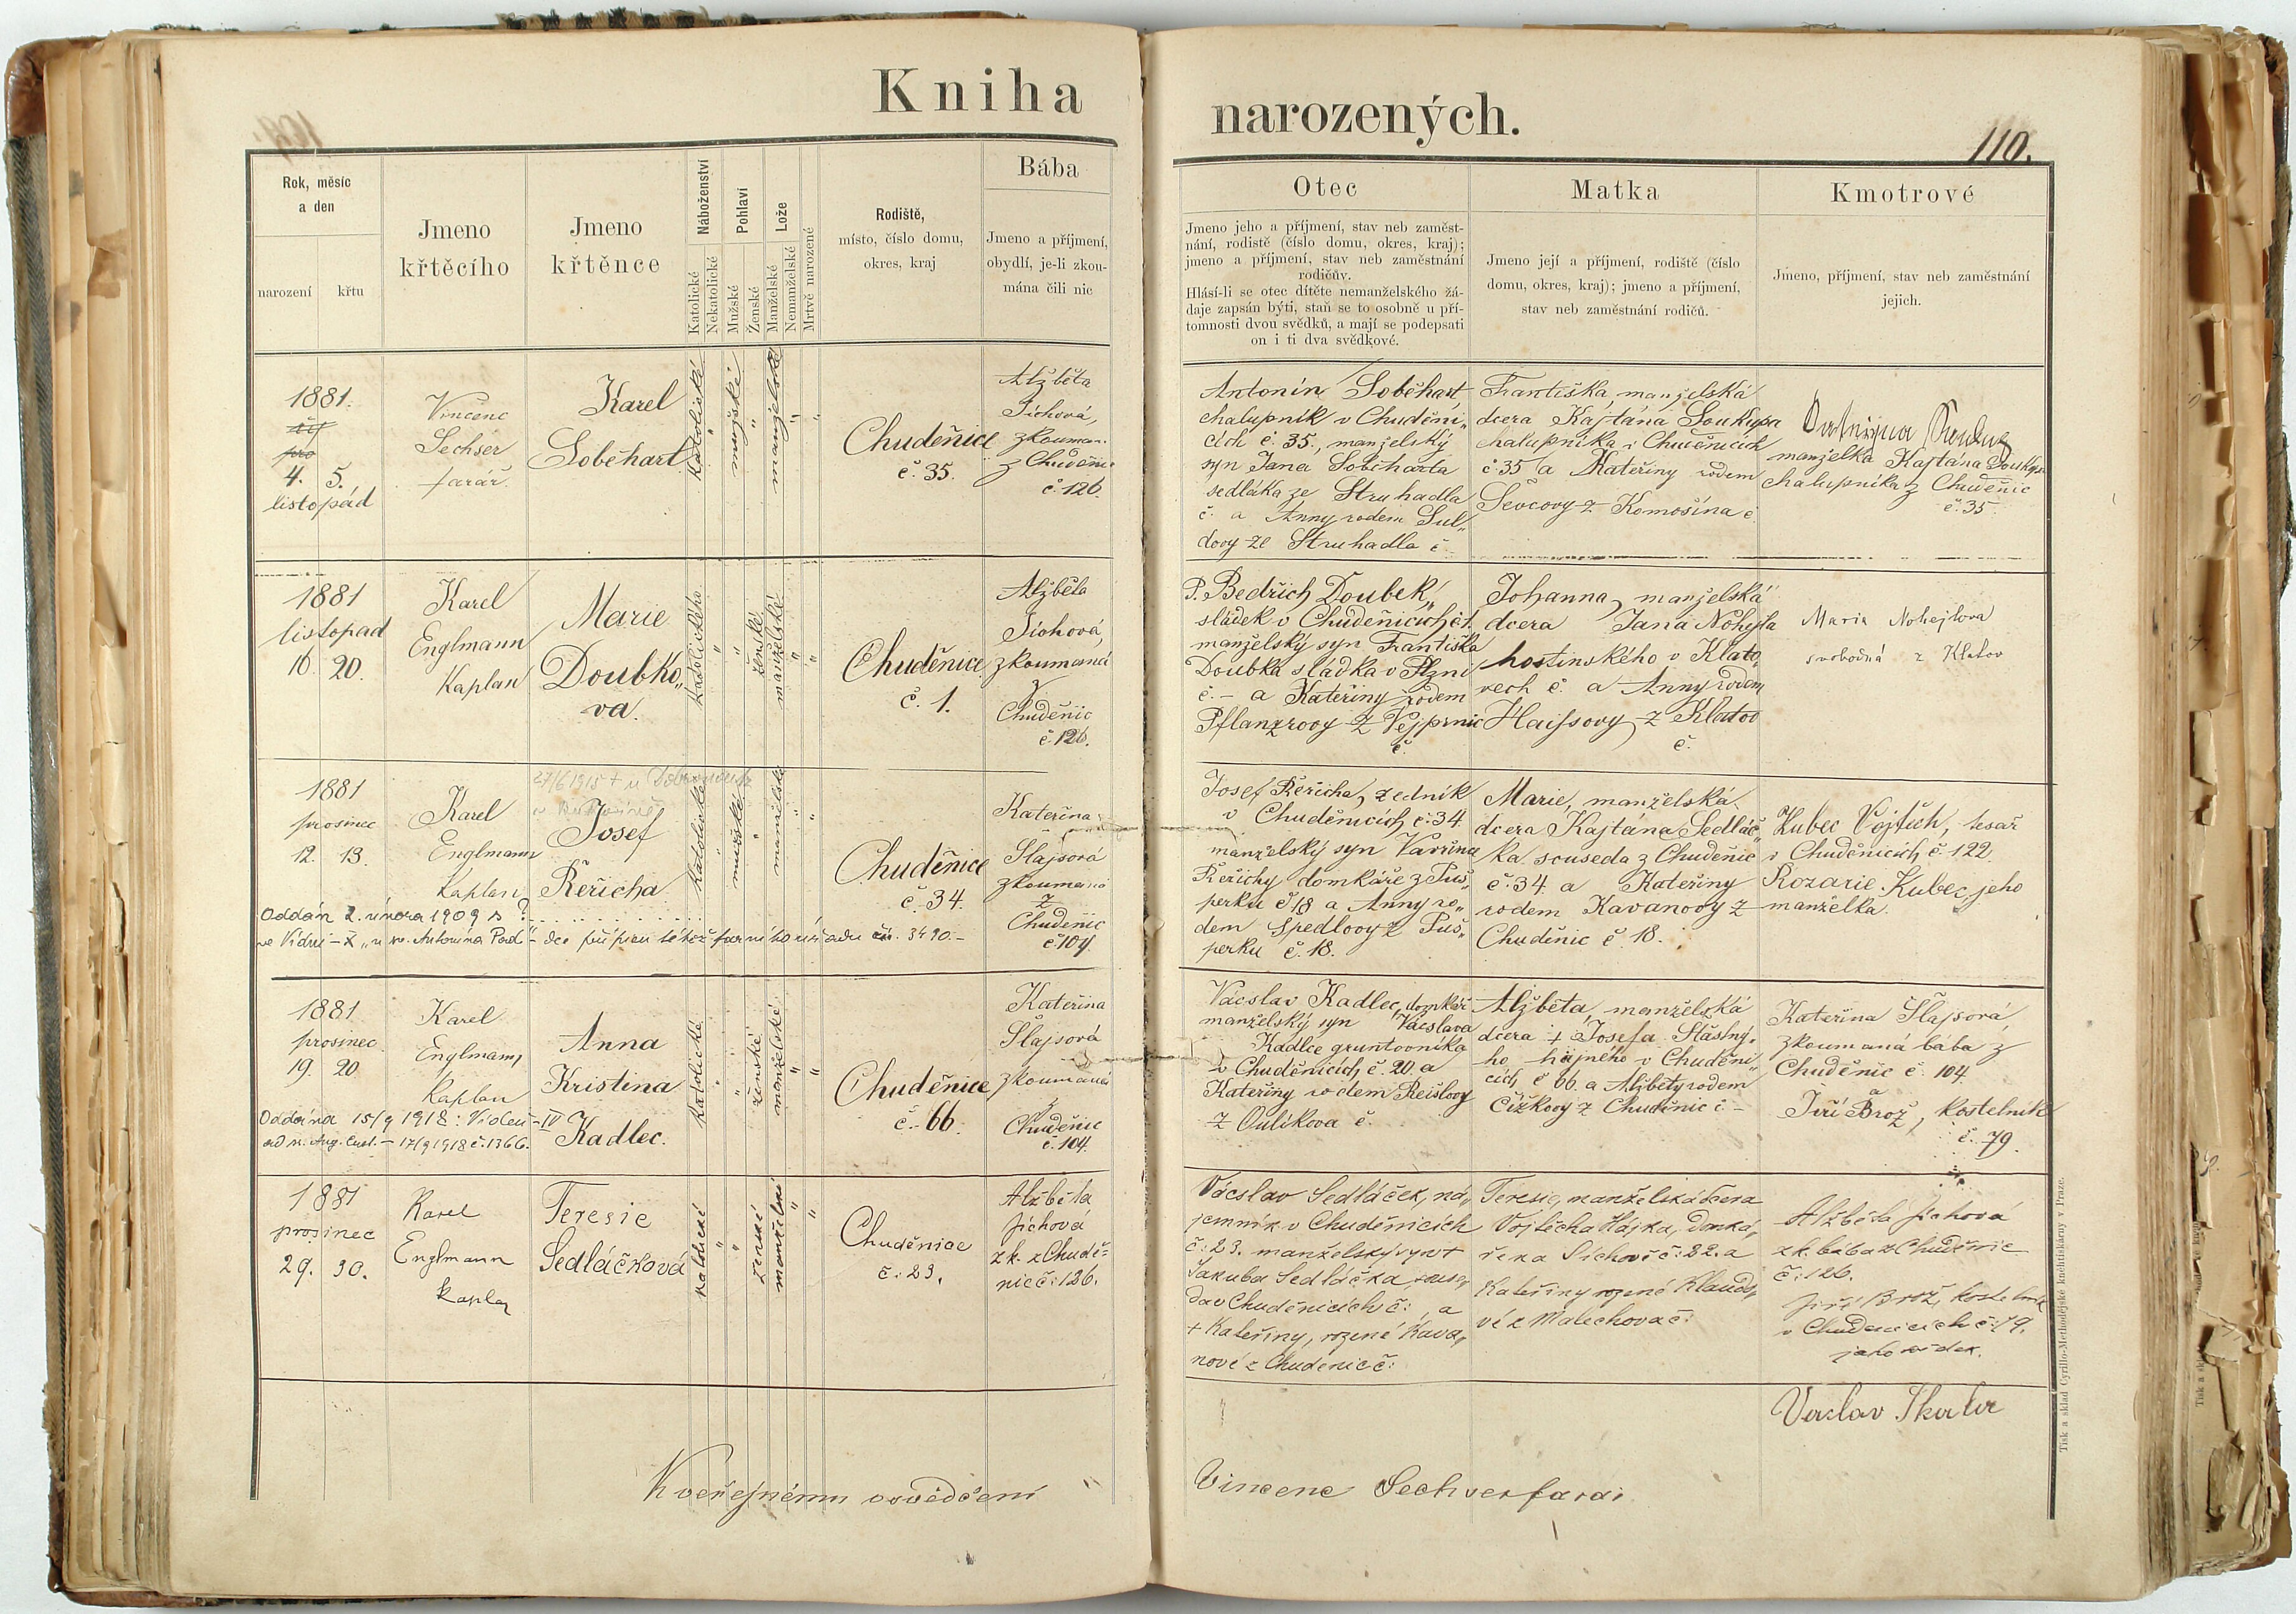 Kniha
narozených.
110.
Rok, měsíc
a den
narození
křtu
Jmeno
křtěcího
Jmeno
křtěnce
Náboženství
Katolické
Nekatolické
Pohlaví
Mužské
Ženské
Lože
Manželské
Nemanželské
Mrtvě narozené
Rodiště,
místo, číslo domu,
okres, kraj
Bába
Jmeno a příjmení,
obydlí, je-li zkou-
mána čili nic
Otec
Jmeno jeho a příjmení, stav neb zaměst-
nání, rodistě (číslo domu, okres, kraj);
jmeno a příjmení, stav neb zaměstnání
rodičův.
Hlásí-li se otec dítěte nemanželského žá-
daje zapsán býti, staň se to osobně u pří-
tomnosti dvou svědků, a mají se podepsati
on i ti dva svědkové.
Matka
Jmeno její a příjmení, rodiště (číslo
domu, okres, kraj); jmeno a příjmení,
stav neb zaměstnání rodičů.
Kmotrové
Jméno, příjmení, stav neb zaměstnání
jejich.
1881.
4. 5.
listopad
Vincenc
Sechser
farář.
Karel
Soběhart
katolické
mužské
manželské
Chuděnice
č. 35.
Alžběta
Jíchová,
zkouman.
z Chuděnic
č. 126.
Antonín Soběhart,
chalupník v Chuděni„
cích č. 35., manželský
syn Jana Soběharta
sedláka ze Struhadla
č. a Anny rodem Sul„
dovy ze Struhadla č.
Františka, manželská
dcera Kajtána Soukupa
chalupníka v Chuděnicích
č. 35 a Kateřiny rodem
Ševcovy z Komošína č.
manželka Kajtána Soukupa
chalupníka z Chuděnic
č. 35.
1881
listopad
16. 20.
Karel
Englmann
Kaplan
Marie
Doubko„
va.
katolického
ženské
manželské
Chuděnice
č. 1.
Alžběta
Jíchová,
zkoumaná
z
Chuděnic
č. 126.
P. Bedřich Doubek,
sládek v Chuděnicích č. 1.
manželský syn Františka
Doubka sládka v Plzni
č. – a Kateřiny rodem
Pflanzrovy z Vejprnic
č.
Johanna, manželská
dcera Jana Nohejla
hostinského v Klato„
vech č. a Anny rodem
Haissovy z Klatov
č.
Maria Nohejlova
svobodná z Klatov
1881
prosinec
12. 13.
Karel
Englmann
Kaplan
27/6 1915 +
Josef
Řeřicha
katolické
mužské
manželské
Chuděnice
č. 34.
Kateřina
Šlajsová
zkoumaná
z
Chuděnic
č. 104.
Oddán 2. února 1909 s ?
ve Vídni – X „u sv. Antonína Pad.“ –
Josef Řeřicha, zedník
v Chuděnicích č. 34
manželský syn Vavřína
Řeřichy domkáře z Puš„
perku č. 18 a Anny ro„
dem Spedlovy z Puš„
perku č. 18.
Marie, manželská
dcera Kajtána Sedláč„
ka souseda z Chuděnic
č. 34 a Kateřiny
rodem Kavanovy z
Chuděnic č. 18.
Kubec Vojtěch, tesař
v Chuděnicích č. 122.
Rozarie Kubec, jeho
manželka.
1881.
prosinec
19. 20
Karel
Englmann,
Kaplan
Anna
Kristina
Kadlec.
katolické
ženské
manželské
Chuděnice
č. 66.
Kateřina
Šlajsová
zkoumaná
z
Chuděnic
č. 104.
Oddána 15/9 1918: Videň – IV
– 17/9 1918 č. 1366.
Vácslav Kadlec, domkář
manželský syn Vácslava
Kadlce gruntovníka
v Chuděnicích č. 20. a
Kateřiny rodem Reislovy
z Oulikova č.
Alžběta, manželská
dcera + Josefa Šťastný„
ho, hajného v Chuděni„
cích č. 66. a Alžběty rodem
Čížkovy z Chuděnic č. –
Kateřina Šlajsová,
zkoumaná bába z
Chuděnic č. 104.
a
Jiří Brož, kostelník
č. 79.
1881
prosinec
29. 30.
Karel
Englmann
kaplan
Teresie
Sedláčková
katolické
ženské
manželské
Chuděnice
č: 23.
Alžběta
Jíchová
zk. z Chudě-
nic č: 126.
Vácslav Sedláček, ná„
jemník v Chuděnicích
č: 23. manželský syn +
Jakuba Sedláčka, souse„
da v Chuděnicích č: , a
+ Kateřiny, rozené Kava„
nové z Chuděnic č:
Teresie, manželská dcera
Vojtěcha Hájka, domká„
ře na Sichově č: 22. a
Kateřiny rozené Klaud„
vé z Malechova č:
Alžběta Jíchová
zk. bába z Chuděnic
č: 126.
Jiří Brož, kostelník
v Chuděnicích č: 79.
jako svědek.
K veřejnému osvědčení
Vincenc Sechser farář
Tisk a sklad Cyrillo-Methodějské knihtiskárny v Praze.